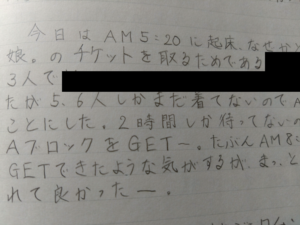 今日はAM5:20に起床、なぜか
娘。のチケットを取るためである
3人で
たが5、6人しかまだ着てないので
ことにした。2時間しか待ってない
AブロックをGETー。たぶんAM8:
GETできたような気がするが、まっ、と
れて良かったー。